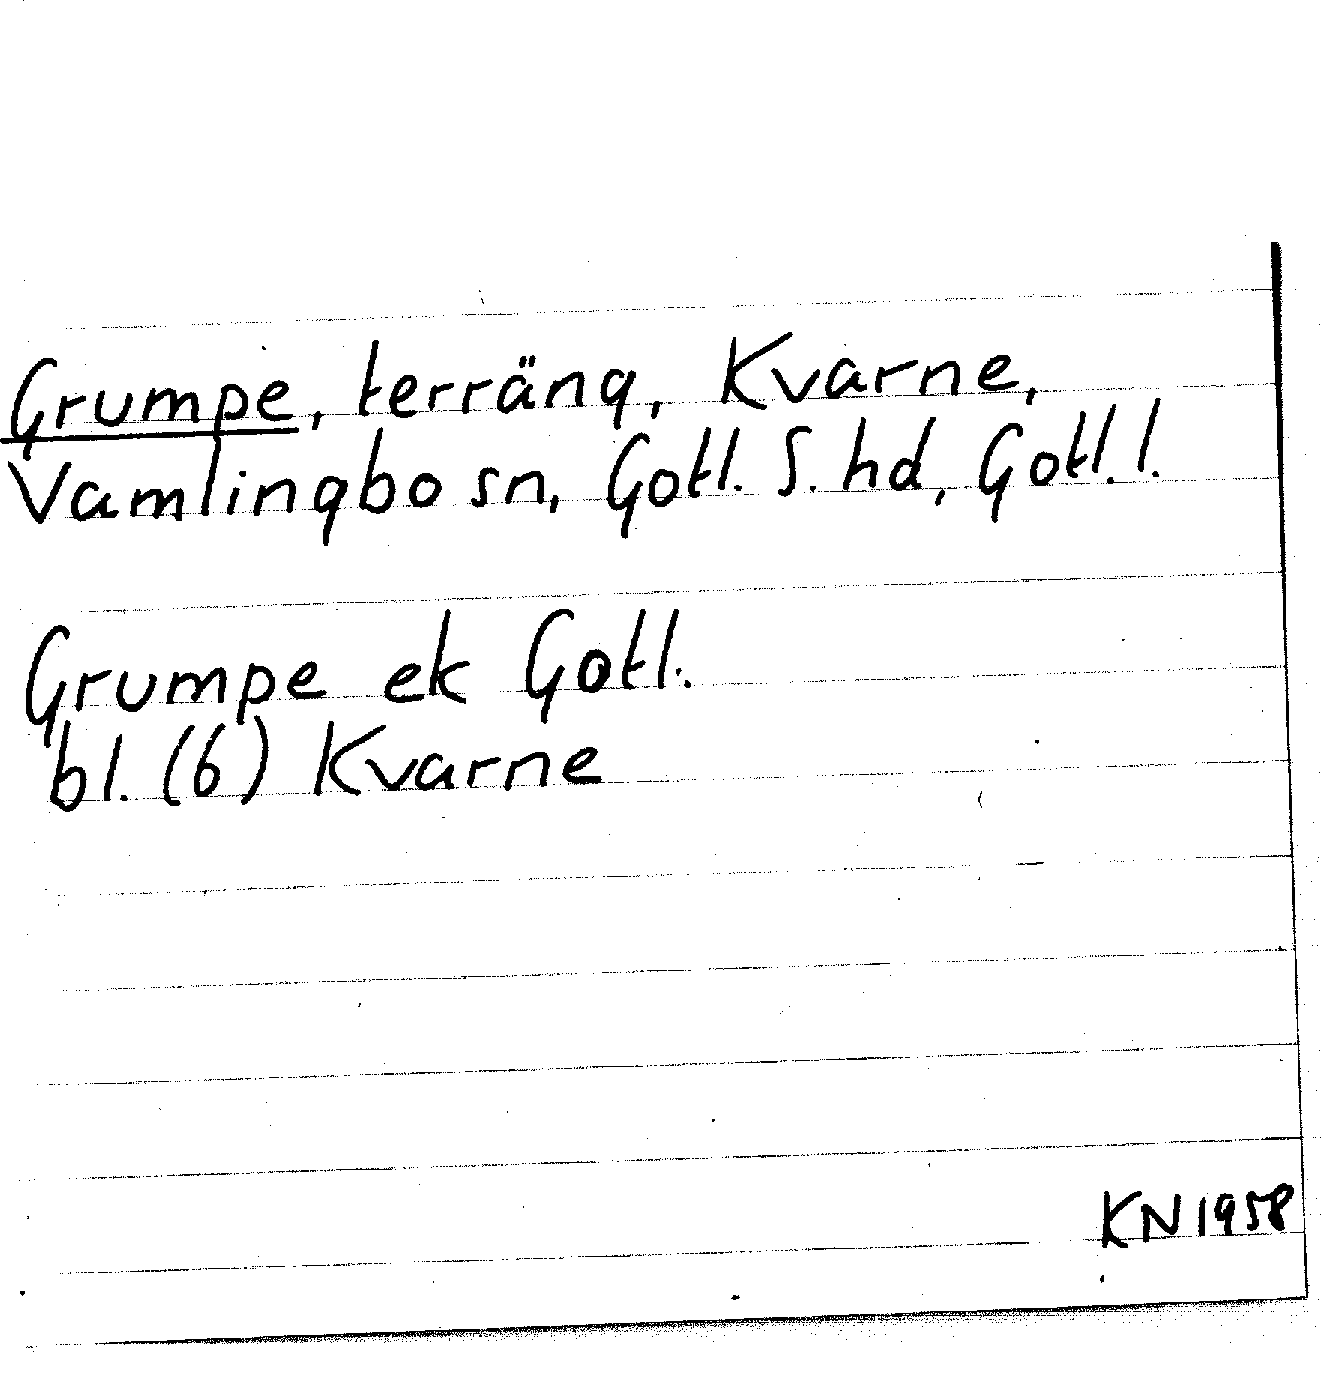 Grumpe, terräng, Kvarne,
Vamlingbo sn, Gotl. S. hd, Gotl. l.
Grumpe ek Gotl.
bl. (6) Kvarne
KN 1958